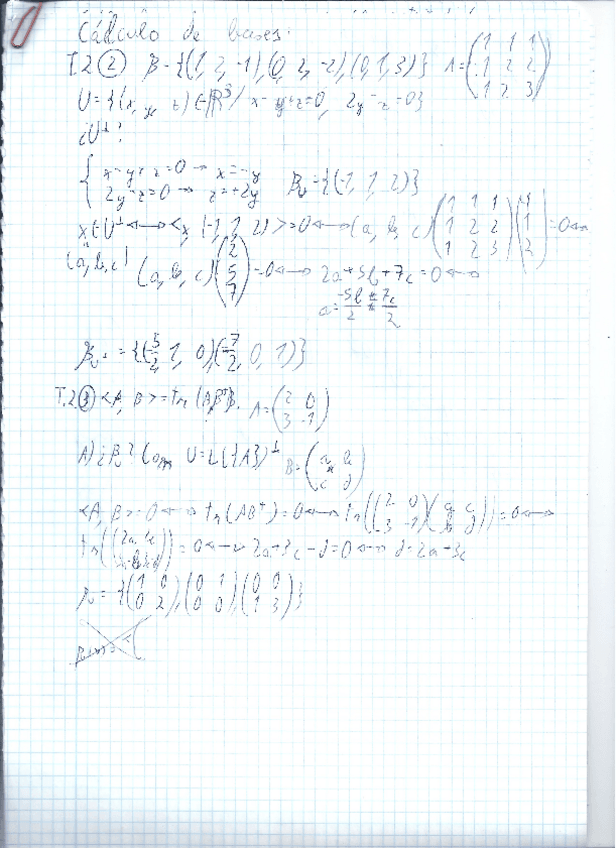 Cálculo de bases:
T.2 ② B={(1, 2, -1),(0, 2, -2),(0,1,3)} A=(1 1 1 / 1 2 2 / 1 2 3)
U={(x, y, z)∈ℝ³/ x-y+z=0, 2y-z=0}
¿U⊥?
{ x-y+z=0 → x=-y
2y-z=0 → z=+2y B_U={(-1, 1, 2)}
x∈U⊥ ↔ <x, (-1, 1, 2)>=0 ↔ (a, b, c)(1 1 1 / 1 2 2 / 1 2 3)(-1 / 1 / 2)=0 ↔
(a,b,c) (a, b, c)(2 / 5 / 7)=0 ↔ 2a+5b+7c=0 ↔
={(-5/2, 1, 0)(-7/2, 0, 1)}
T.2 ③ <A, B>=tr(AB^t). A=(2 0 / 3 -1)
A) ¿B_U? Com U=L({A})⊥ B=(a b / c d)
<A, B>=0 ↔ tr(AB^t)=0 ↔ tr((2 0 / 3 -1)(a c / b d))=0 ↔
=0 ↔ 2a+3c-d=0 ↔ d=2a+3c
B_U={(1 0 / 0 2),(0 1 / 0 0)(0 0 / 1 3)}